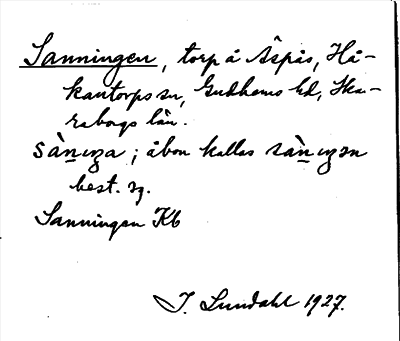 Sanningen, torp å Åspås, Hå-
kantorps sn, Gudhems hd, Ska-
raborgs län.
sàṉıŋa; åbon kallas sàṉıŋən
best. sg.
Sanningen Kb
I. Lundahl 1927.